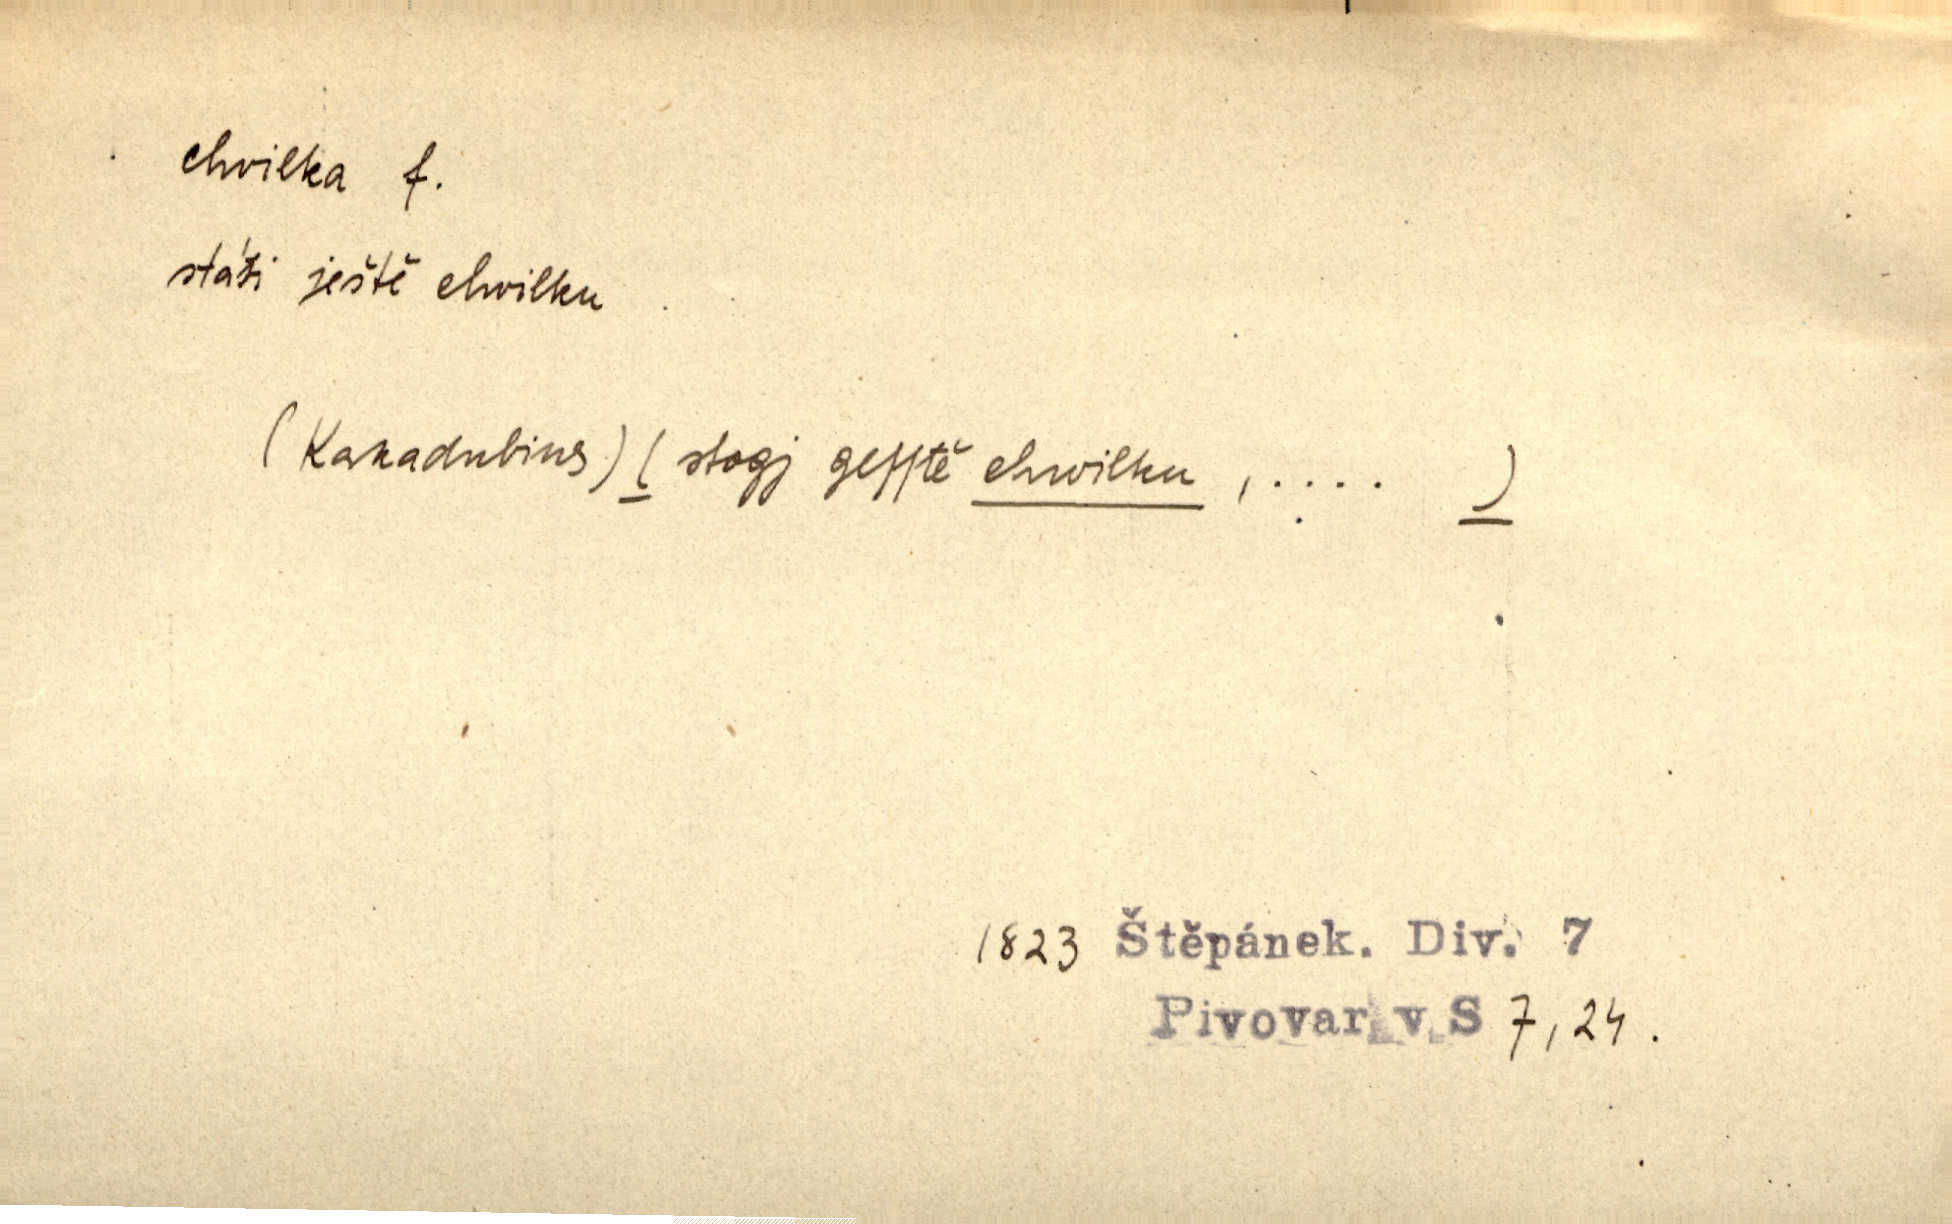 chvilka f.
státi ještě chvilku
(Kakadubius) ( stogj gessstě chwilku , . . . . )
1823 Štěpánek. Div. 7
Pivovar v S 7, 24.